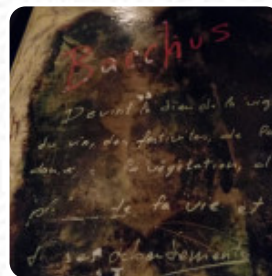 Bacchus
Devint le dieu de la vig
du vin, des festivités, de la
danse, la végétation, d
de la vie et
de ses débordements